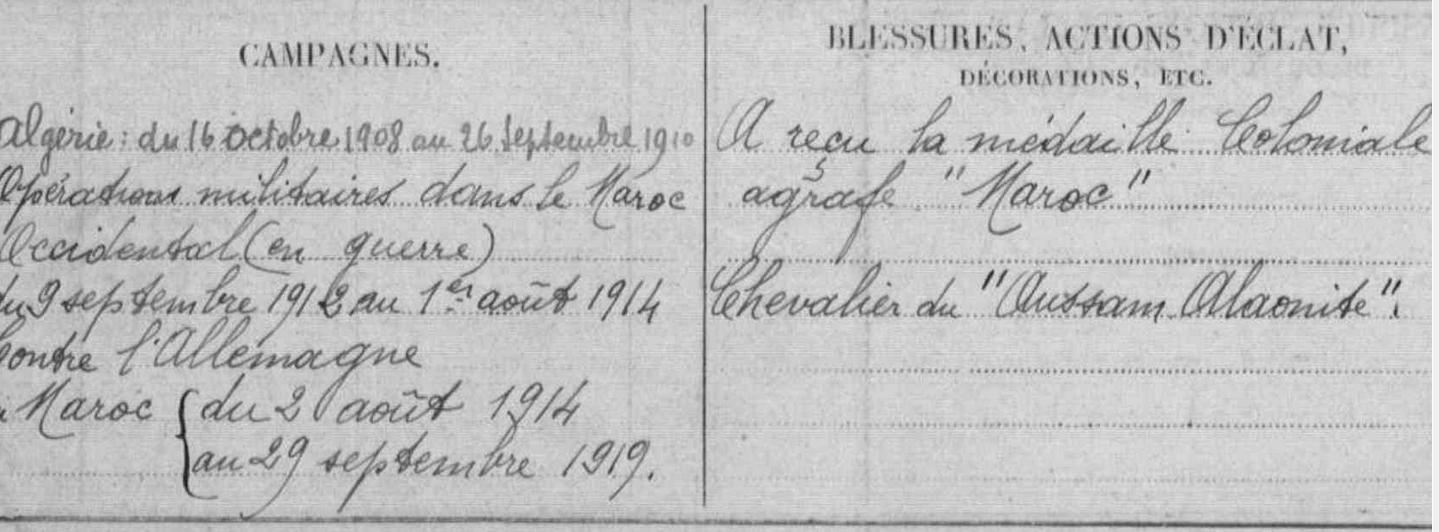 CAMPAGNES.
Algérie : du 16 octobre 1908 au 26 septembre 1910
Opérations militaires dans le Maroc
Occidental (en guerre)
du 9 septembre 1912 au 1er août 1914
Contre l'Allemagne
Maroc { du 2 août 1914
au 29 septembre 1919.
BLESSURES, ACTIONS D'ÉCLAT,
DÉCORATIONS, ETC.
A reçu la médaille Coloniale
agrafe "Maroc"
Chevalier du "Oussam Alaouite".